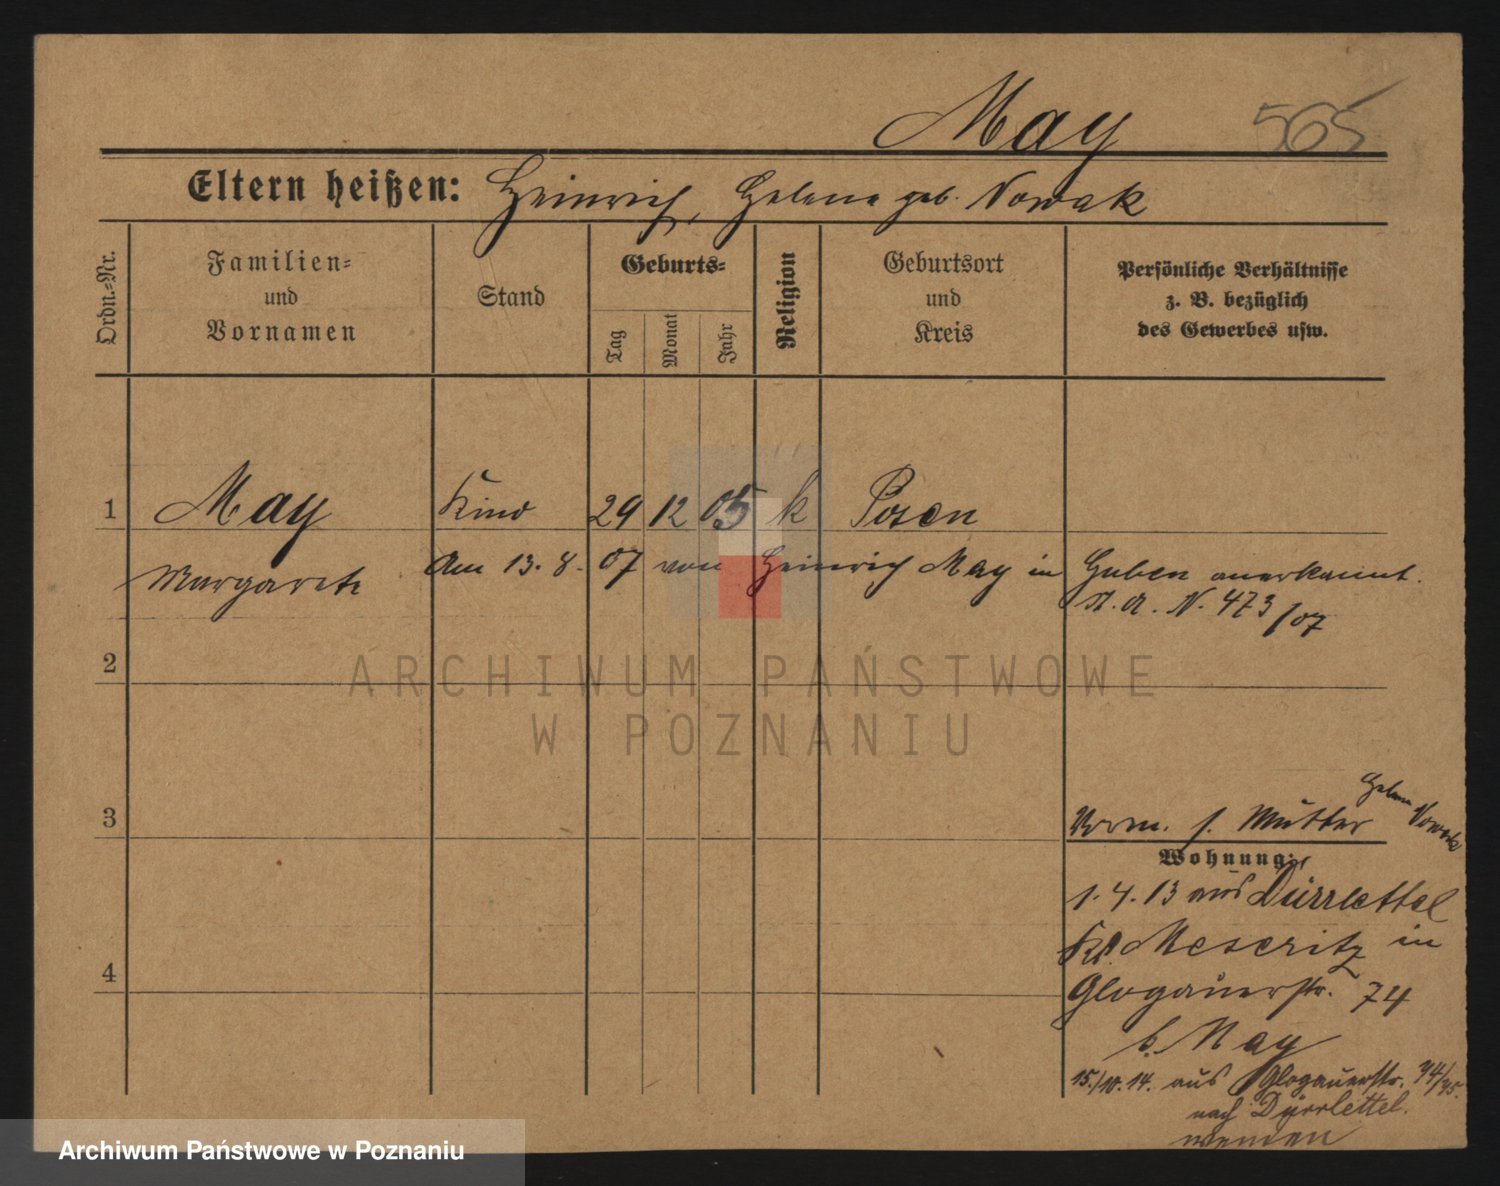 May 565
Eltern heißen: Heinrich, Helene geb. Nowak
Ordn.-Nr.
Familien-
und
Vornamen
Stand
Geburts-
Tag
Monat
Jahr
Religion
Geburtsort
und
Kreis
Persönliche Verhältnisse
z. B. bezüglich
des Gewerbes usw.
1 May Kind 29 12 05 k Posen
Margarete Am 13. 8. 07 von Heinrich May in Guben anerkannt.
St. A. N. 473/07
2
ARCHIWUM PAŃSTWOWE
W POZNANIU
3
Vorm. s. Mutter Helene Nowak
Wohnung:
1. 4. 13 aus Dürrlettel
Kr. Meseritz in
Glogauerstr. 74
b. May
4
15./10. 14. aus Glogauerstr. 74/75.
nach Dürrlettel.
Archiwum Państwowe w Poznaniu